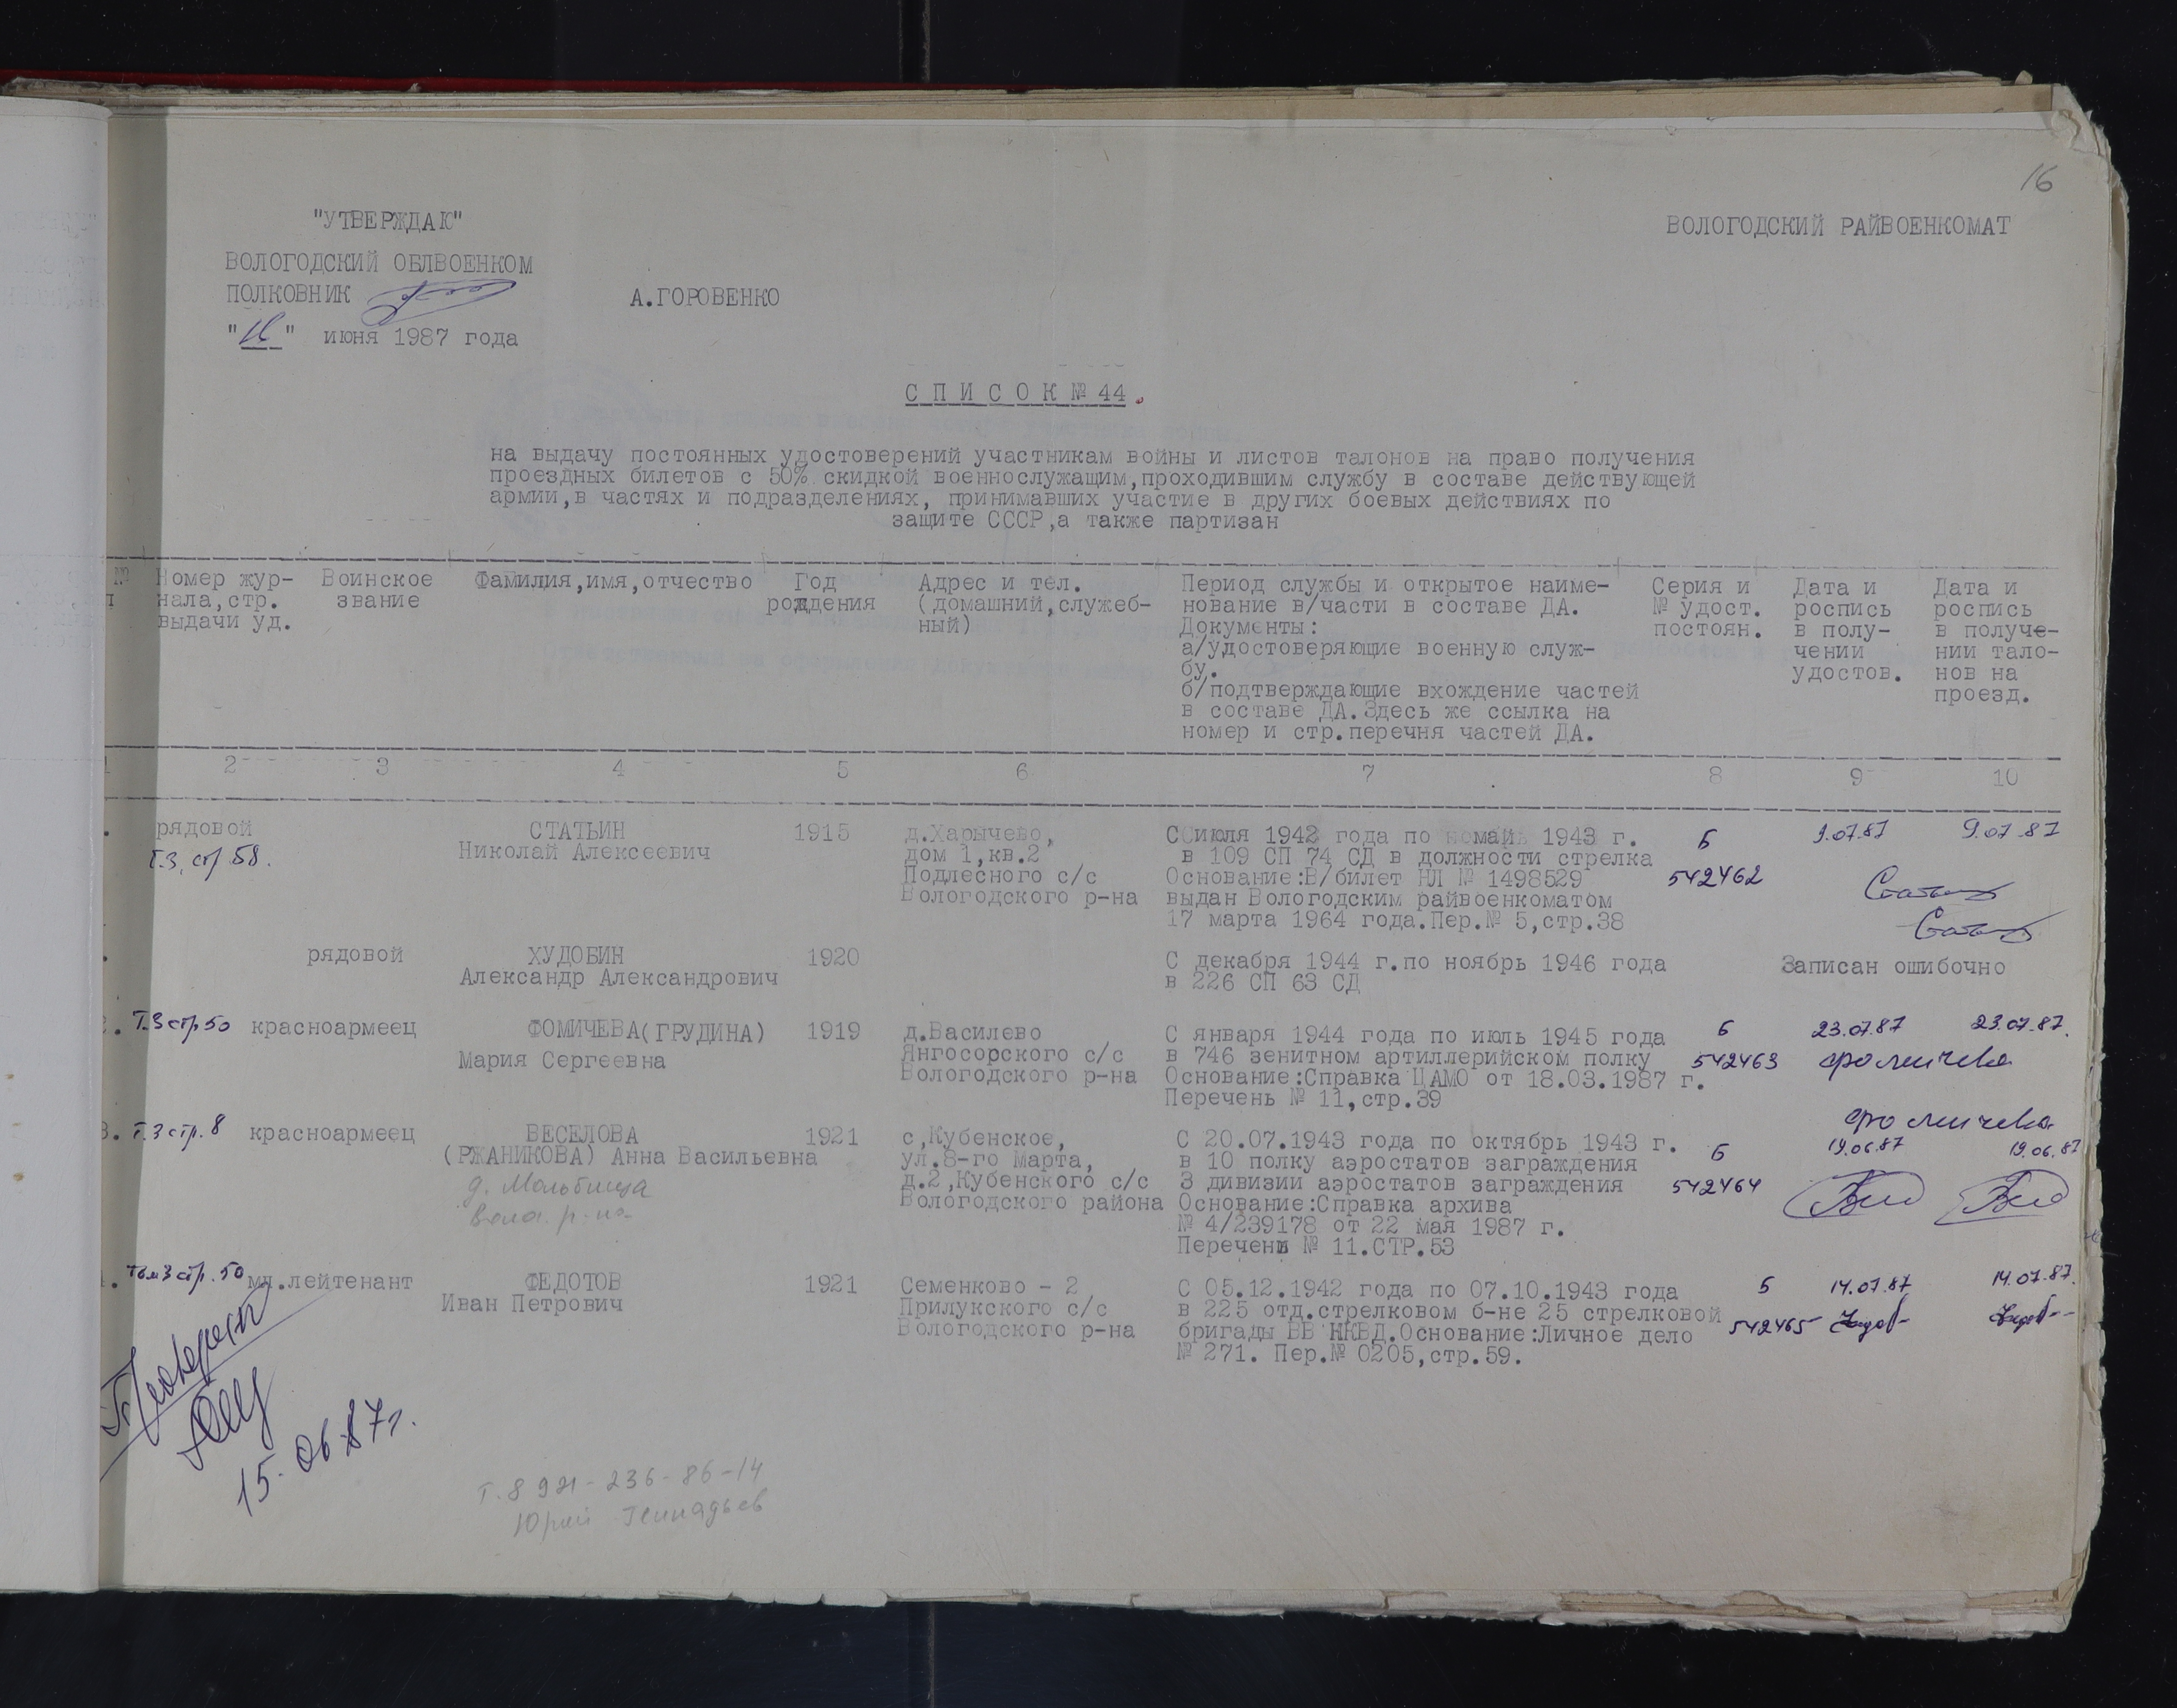 16
"УТВЕРЖДАЮ"
ВОЛОГОДСКИЙ РАЙВОЕНКОМАТ
ВОЛОГОДСКИЙ ОБЛВОЕНКОМ
ПОЛКОВНИК А.ГОРОВЕНКО
"16" июня 1987 года
С П И С О К № 44.
на выдачу постоянных удостоверений участникам войны и листов талонов на право получения
проездных билетов с 50% скидкой военнослужащим,проходившим службу в составе действующей
армии,в частях и подразделениях, принимавших участие в других боевых действиях по
защите СССР,а также партизан
№
Номер жур-
нала,стр.
выдачи уд.
Воинское
звание
Фамилия,имя,отчество
Год
рождения
Адрес и тел.
(домашний,служеб-
ный)
Период службы и открытое наиме-
нование в/части в составе ДА.
Документы:
а/удостоверяющие военную служ-
бу.
б/подтверждающие вхождение частей
в составе ДА.Здесь же ссылка на
номер и стр.перечня частей ДА.
Серия и
№ удост.
постоян.
Дата и
роспись
в полу-
чении
удостов.
Дата и
роспись
в получе-
нии тало-
нов на
проезд.
1 2 3 4 5 6 7 8 9 10
рядовой
Т.3, стр.58.
СТАТЬИН
Николай Алексеевич
1915
д.Харычево,
дом 1,кв.2
Подлесного с/с
Вологодского р-на
С июля 1942 года по май 1943 г.
в 109 СП 74 СД в должности стрелка
Основание:В/билет НЛ № 1498529
выдан Вологодским райвоенкоматом
17 марта 1964 года.Пер.№ 5,стр.38
Б
542462
9.07.87
9.07.87
рядовой
ХУДОБИН
Александр Александрович
1920
С декабря 1944 г.по ноябрь 1946 года
в 226 СП 63 СД
Записан ошибочно
Т.3 стр.50
красноармеец
ФОМИЧЕВА(ГРУДИНА)
Мария Сергеевна
1919
д.Василево
Янгосорского с/с
Вологодского р-на
С января 1944 года по июль 1945 года
в 746 зенитном артиллерийском полку
Основание:Справка ЦАМО от 18.03.1987 г.
Перечень № 11,стр.39
Б
542463
23.07.87
23.07.87.
Фомичева
Фомичева
3. Т.3 стр.8
красноармеец
ВЕСЕЛОВА
(РЖАНИКОВА) Анна Васильевна
д. Мольбища
Волог. р-на
1921
с,Кубенское,
ул.8-го Марта,
д.2,Кубенского с/с
Вологодского района
С 20.07.1943 года по октябрь 1943 г.
в 10 полку аэростатов заграждения
3 дивизии аэростатов заграждения
Основание:Справка архива
№ 4/239178 от 22 мая 1987 г.
Перечень № 11.СТР.53
Б
542464
19.06.87
19.06.87
Том 3 стр.50
мл.лейтенант
ФЕДОТОВ
Иван Петрович
1921
Семенково - 2
Прилукского с/с
Вологодского р-на
С 05.12.1942 года по 07.10.1943 года
в 225 отд.стрелковом б-не 25 стрелковой
бригады ВВ НКВД.Основание:Личное дело
№ 271. Пер.№ 0205,стр.59.
Б
542465
14.07.87
14.07.87.
15.06.87г.
Т. 8 921-236-86-14
Юрий Геннадьев